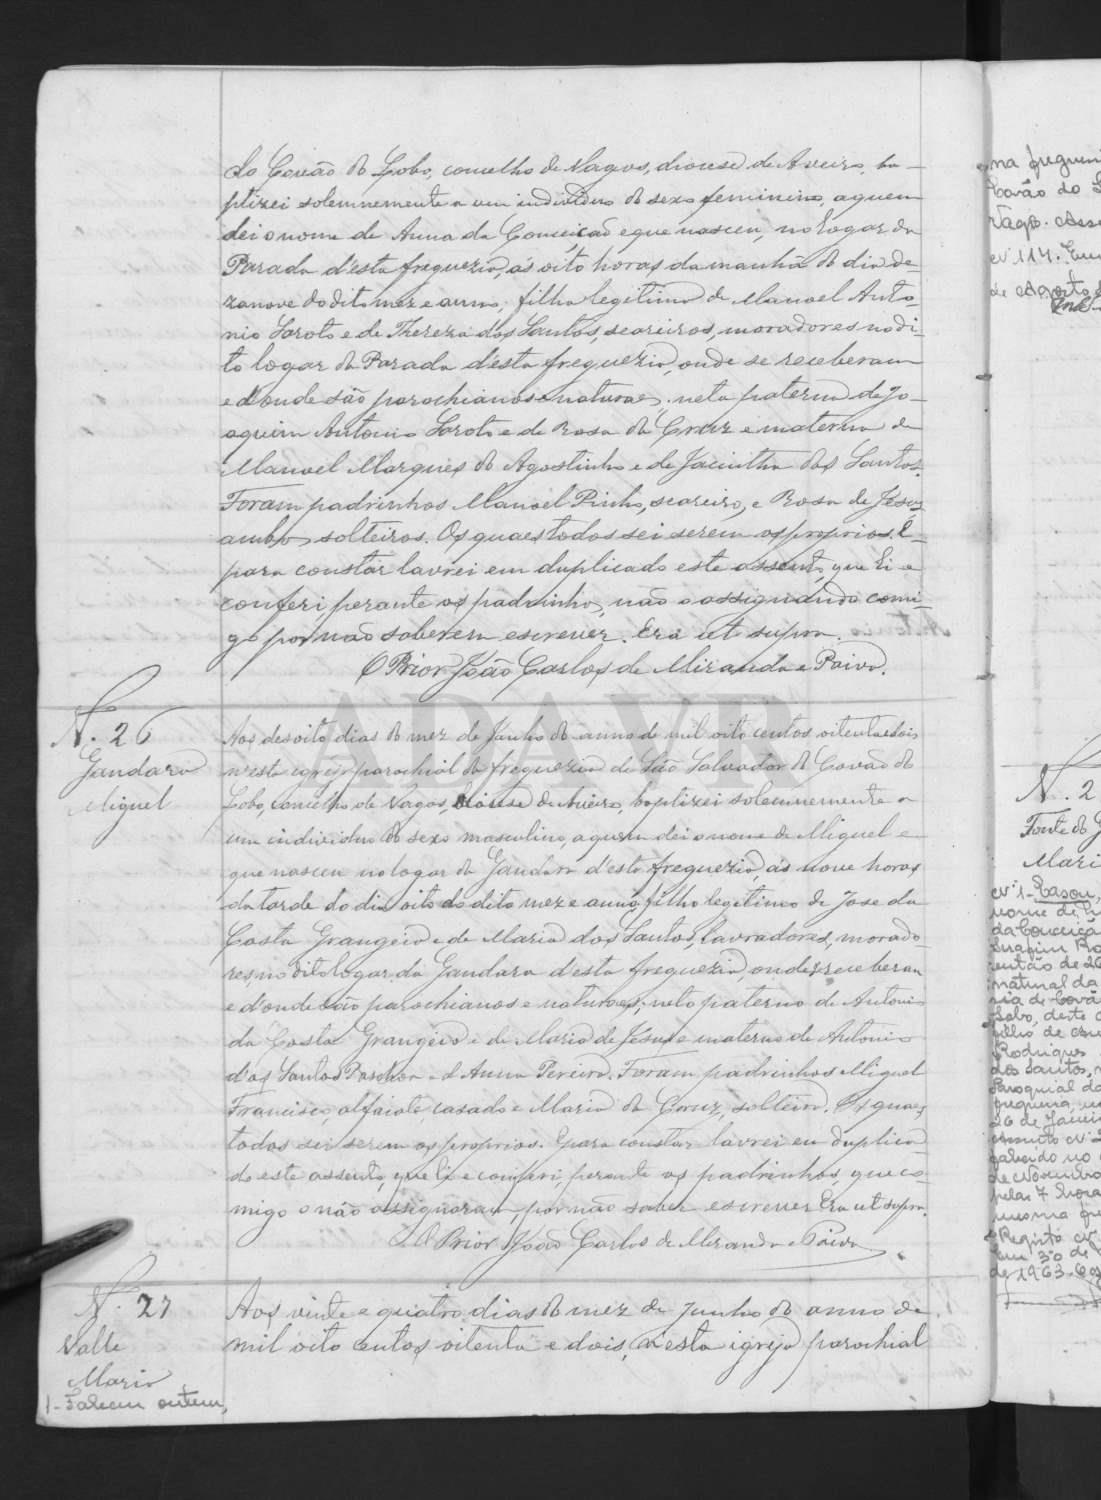 do Covão do Lobo, concelho de Vagos, diocese de Aveiro, ba-
ptizei solemnemente a um individuo do sexo feminino, a quem
dei o nome de Anna da Conceição e que nasceu, no logar da
Parada d'esta freguezia, ás oito horas da manhã do dia de-
zanove do dito mez e anno, filha legitima de Manoel Anto-
nio Loroto e de Thereza dos Santos, seareiros, moradores no di-
to logar da Parada d'esta freguezia, onde se receberam
e d'onde são parochianos e naturaes; neta paterna de Jo-
aquim Antonio Loroto e de Rosa da Cruz e materna de
Manoel Marques do Agostinho e de Jacintha dos Santos.
Foram padrinhos Manoel Pinho, seareiro, e Rosa de Jesus
ambos solteiros. Os quaes todos sei serem os proprios. E
para constar lavrei em duplicado este assento, que li e
conferi perante os padrinhos, não o assignando comi-
go por não saberem escrever. Era ut supra.
O Prior João Carlos de Miranda e Paiva.
N. 26
Gandara
Miguel
Aos desoito dias do mez de Junho do anno de mil oito centos oitenta e dois
n'esta igreja parochial da freguezia de São Salvador do Covão do
Lobo, concelho de Vagos, diocese de Aveiro, baptizei solemnemente a
um individuo do sexo masculino, a quem dei o nome de Miguel e
que nasceu no logar da Gandara d'esta freguezia, ás nove horas
da tarde do dia oito do dito mez e anno, filho legitimo de Jose da
Costa Grangeio e de Maria dos Santos, lavradores, morado-
res, no dito logar da Gandara d'esta freguezia, onde se receberam
e d'onde são parochianos e naturaes; neto paterno de Antonio
da Costa Grangeio e de Maria de Jesus e materno de Antonio
dos Santos Paschoa e d'Anna Pereira. Foram padrinhos Miguel
Francisco, alfaiate, casado e Maria da Cruz, solteira. Os quaes
todos sei serem os proprios. E para constar lavrei em duplica-
do este assento, que li e conferi, perante os padrinhos, que co-
migo o não assignaram, por não saber escrever Era ut supra.
O Prior João Carlos de Miranda e Paiva
N. 27
Valle
Maria
1- Faleceu ontem,
Aos vinte e quatro dias do mez de Junho do anno de
mil oito centos oitenta e dois, n'esta igreja parochial
ADAVR
na freguesi
Covão do L
Vagos. Asse
nº 114. Em
de Agosto d
N. 2
Fonte do G
Mari
nº 1- Casou,
nome de
da Conceiçã
Serafim Ro
então de 26
natural da
ria de Covã
Lobo, deste c
filho de
Rodrigues
dos Santos,
Paroquial da
freguesia,
26 de Janei